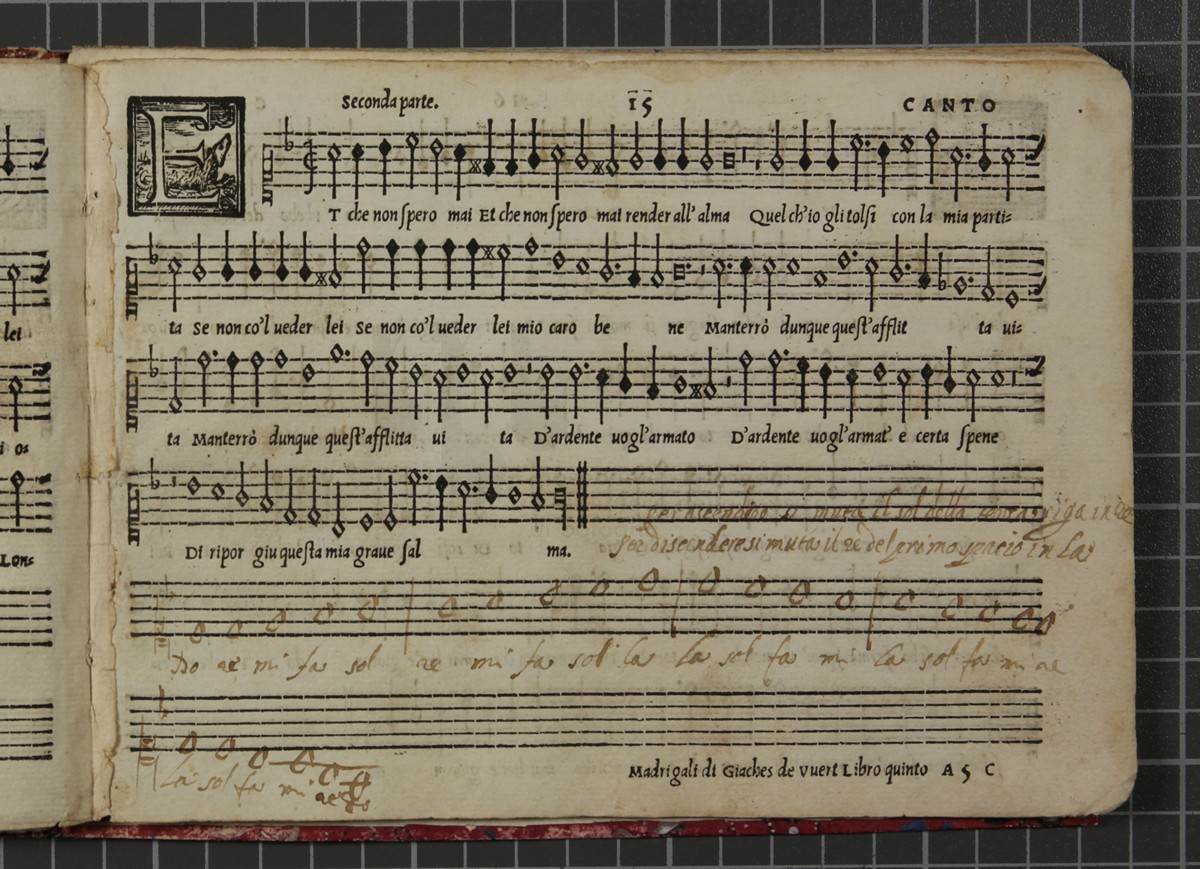 Seconda parte. 15 CANTO
E
T che non ſpero mai Et che non ſpero mai render all' alma Quel ch'io gli tolſi con la mia parti=
lei
ta Se non co'l ueder lei Se non co'l ueder lei mio caro be ne Manterrò dunque queſt'afflit ta ui=
i o=
ta Manterrò dunque queſt'afflitta ui ta D'ardente uogl'armato D'ardente uogl'armat' e certa ſpene
Lon=
Di ripor giu queſta mia graue ſal ma.
per ascendere si muta il sol della riga in re
per discendere si muta il re del primo spacio in La
Do re mi fa sol re mi fa sol la La sol fa mi La sol fa mi re
La sol fa mi re do
Madrigali di Giaches de vuert Libro quinto A 5 C